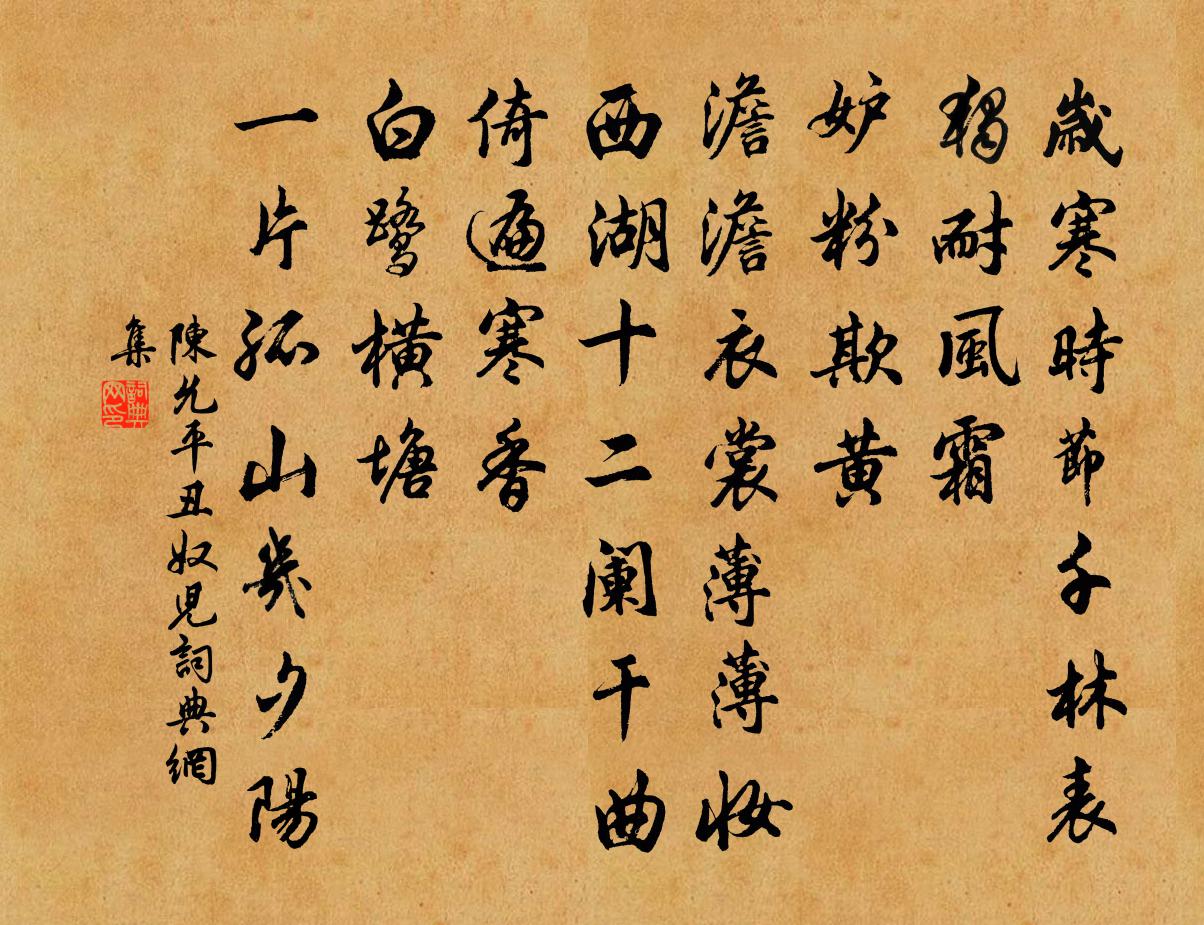 歲寒時節千林表
獨耐風霜
妒粉欺黃
澹澹衣裳薄薄妝
西湖十二阑干曲
倚遍寒香
白鹭橫塘
一片孤山幾夕陽
陳允平丑奴兒詞典網
集
詞典
网印